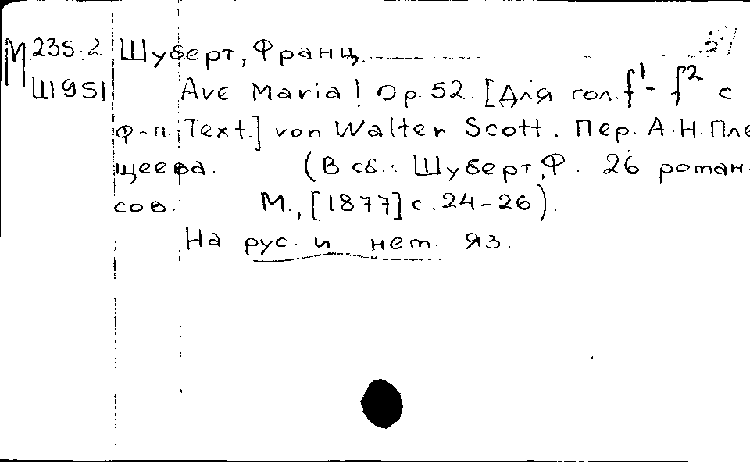 М 235.2 Шуберт, Франц. 51
Ш 951 Ave Maria! Op. 52. [Для гол. f¹- f² с
ф-п. Text.] von Walter Scott. Пер. А.Н. Пле
щеева. (В сб.: Шуберт, Ф. 26 роман-
сов. М., [1877] с. 24-26).
На рус. и нем. яз.